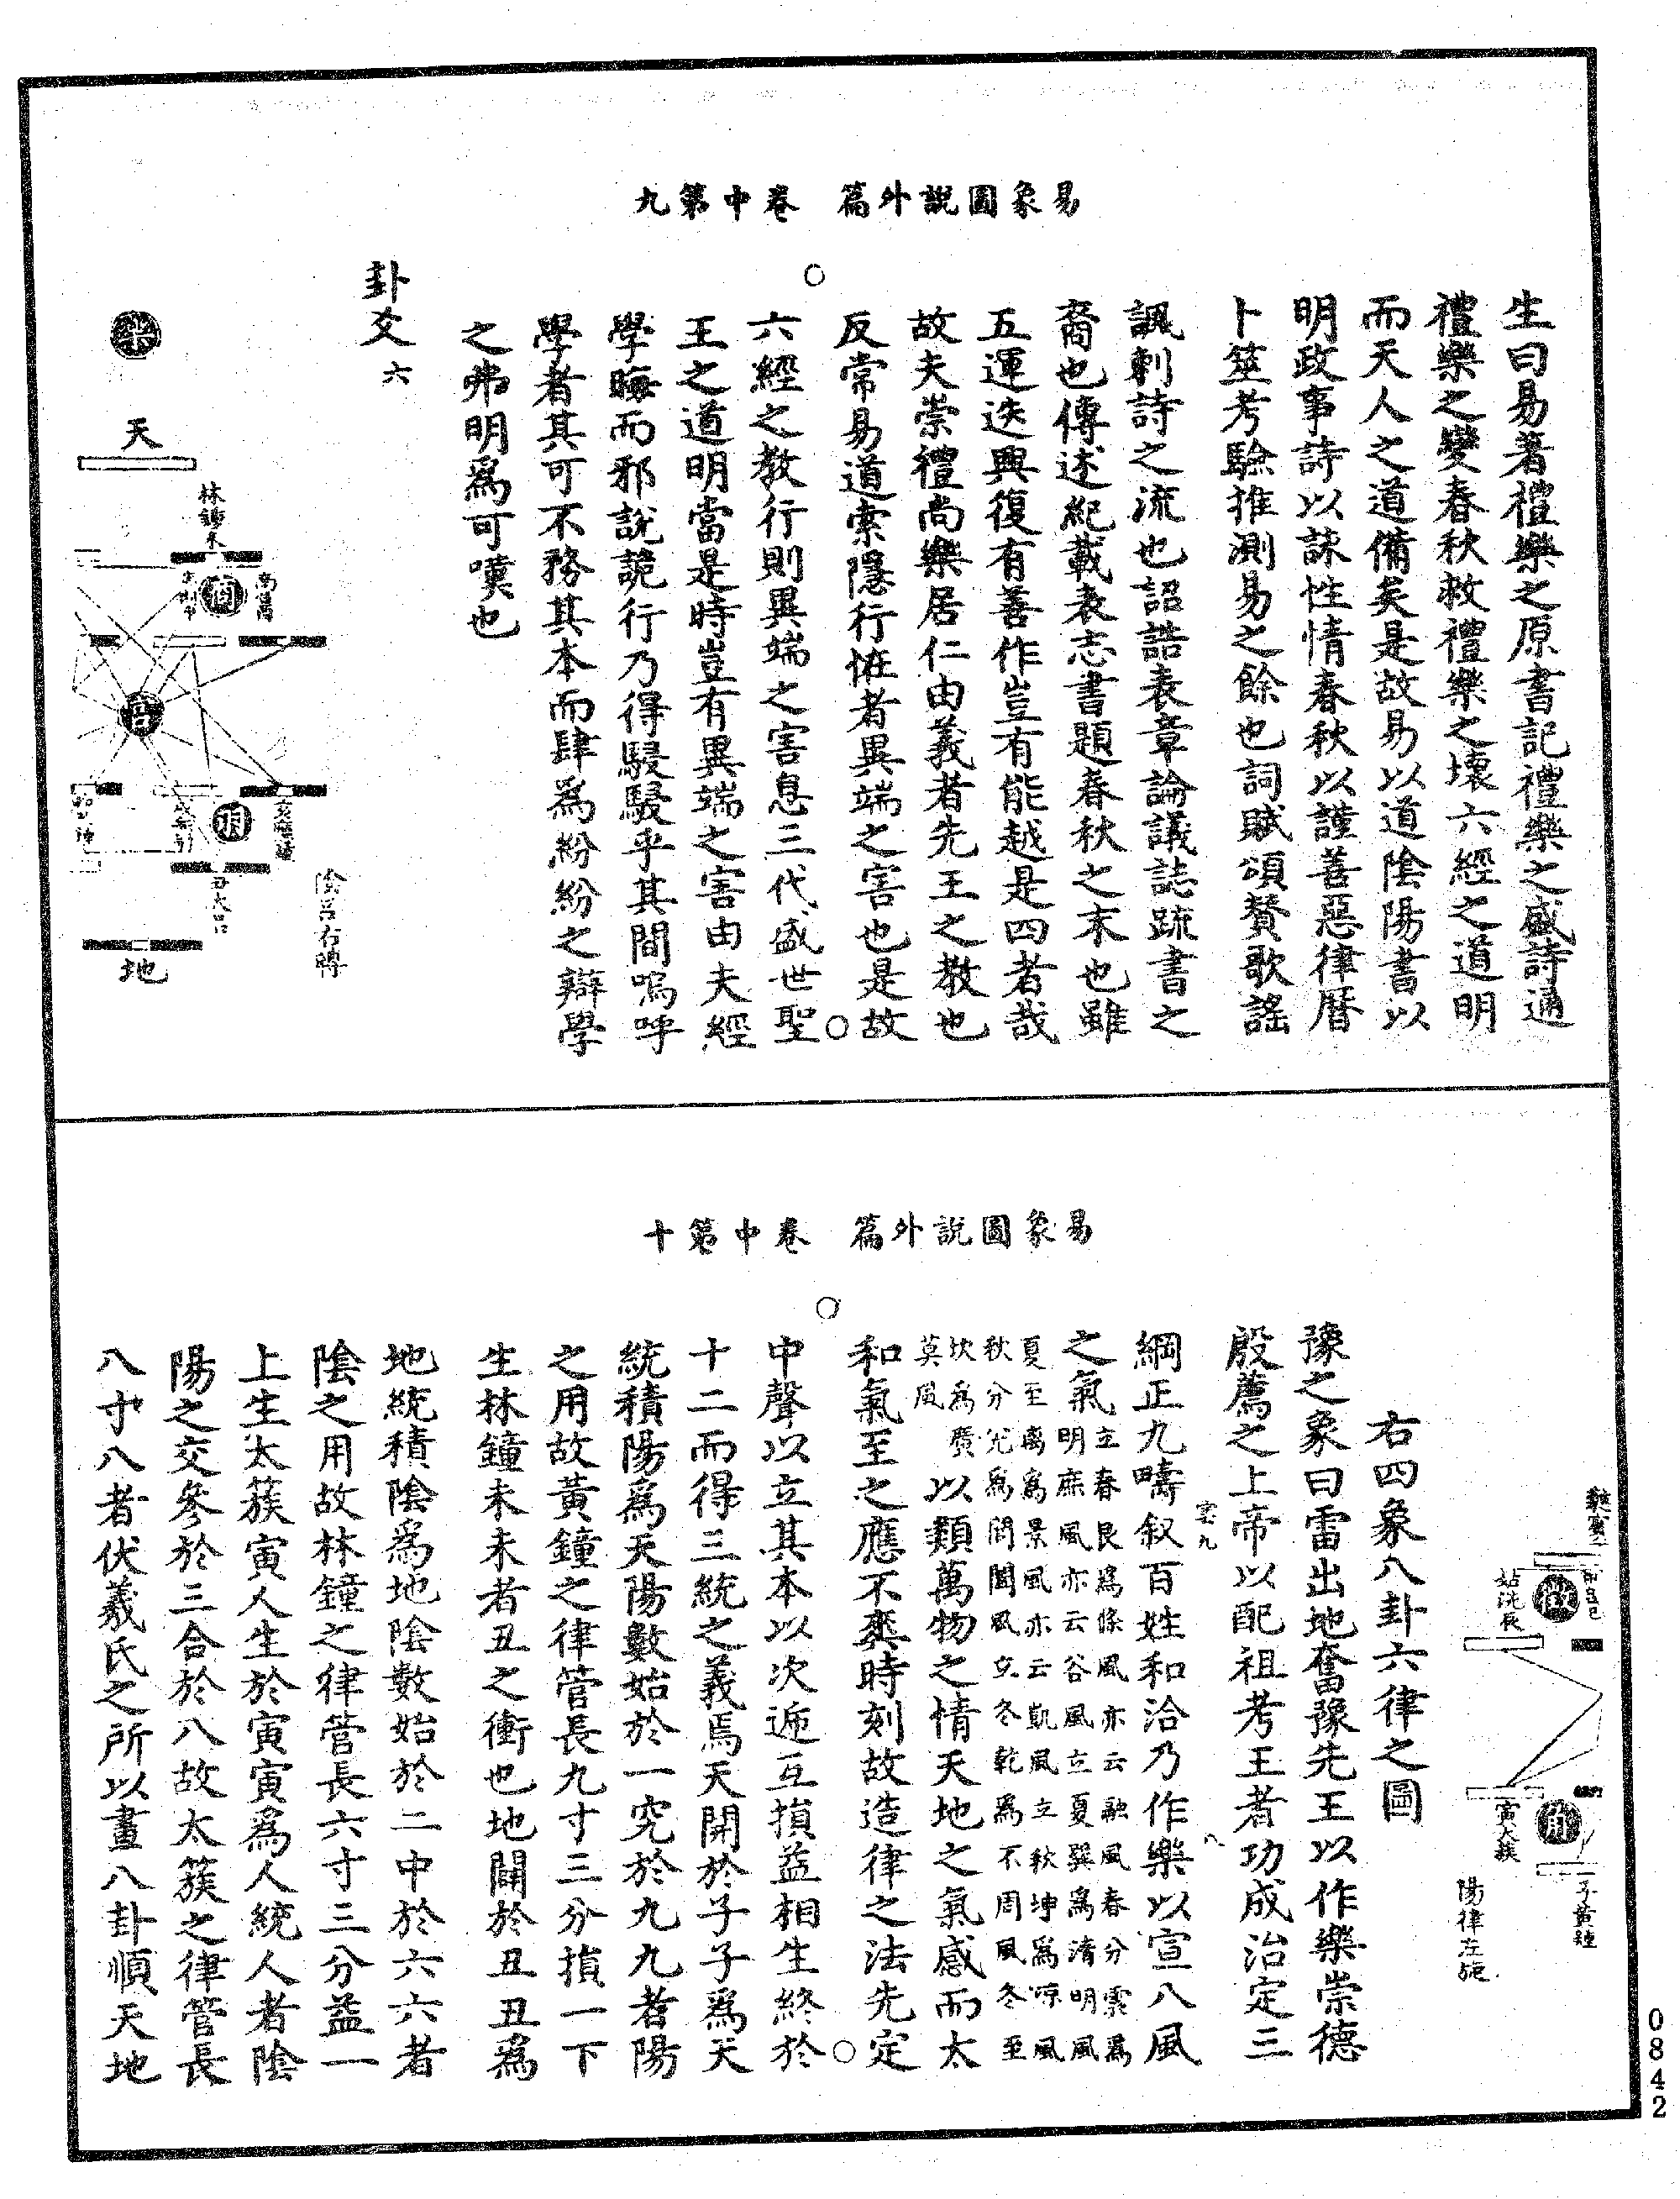 易象圖說外篇　卷中第九
生曰易著禮樂之原書記禮樂之盛詩通
禮樂之變春秋救禮樂之壞六經之道明
而天人之道備矣是故易以道陰陽書以
明政事詩以詠性情春秋以謹善惡律曆
卜筮考驗推測易之餘也詞賦頌贊歌謠
諷刺詩之流也詔誥表章論議誌疏書之
裔也傳述紀載表志書題春秋之末也雖
五運迭興復有善作豈有能越是四者哉
故夫崇禮尚樂居仁由義者先王之教也
反常易道索隱行恠者異端之害也是故
六經之教行則異端之害息三代盛世聖
王之道明當是時豈有異端之害由夫經
學晦而邪說詭行乃得駸駸乎其間嗚呼
學者其可不務其本而肆為紛紛之辯學
之弗明為可嘆也
卦爻 六
陰呂右轉
南呂
林鐘未
商
丑大呂
天
宮
羽
地
易象圖說外篇　卷中第十
蕤賓
仲呂巳
徵
姑洗辰
角
寅太蔟
子黃鍾
陽律左旋
右四象八卦六律之圖
豫之象曰雷出地奮豫先王以作樂崇德
殷薦之上帝以配祖考王者功成治定三
雲九
八
綱正九疇敘百姓和洽乃作樂以宣八風
之氣立春艮為條風亦云融風春分震為
明庶風亦云谷風立夏巽為清明風
夏至離為景風亦云凱風立秋坤為涼風
秋分兌為閶闔風立冬乾為不周風冬至
坎為廣
莫風
以類萬物之情天地之氣感而太
和氣至之應不爽時刻故造律之法先定
中聲以立其本以次遞互損益相生終於
十二而得三統之義焉天開於子子為天
統積陽為天陽數始於一究於九九者陽
之用故黃鐘之律管長九寸三分損一下
生林鐘未未者丑之衝也地闢於丑丑為
地統積陰為地陰數始於二中於六六者
陰之用故林鐘之律管長六寸三分益一
上生太蔟寅人生於寅寅為人統人者陰
陽之交參於三合於八故太蔟之律管長
八寸八者伏羲氏之所以畫八卦順天地
0842